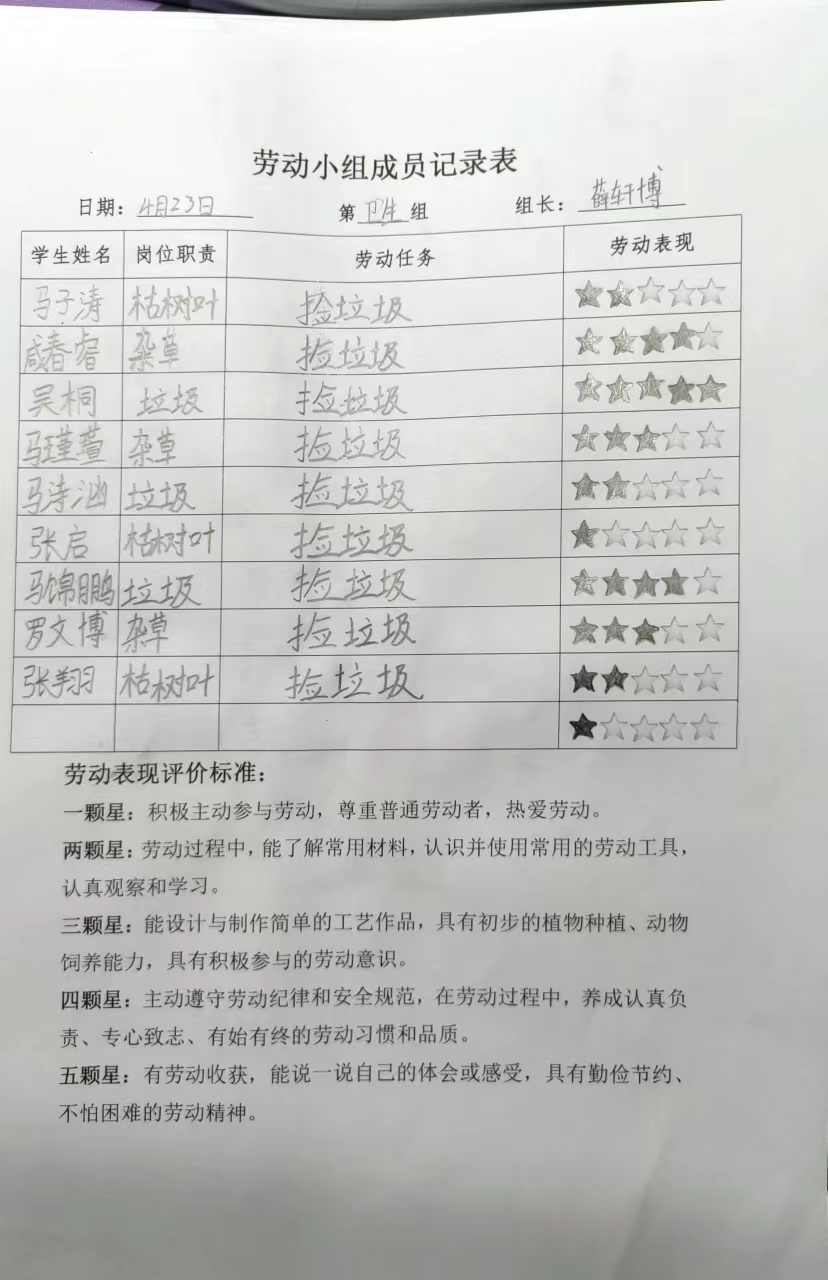 劳动小组成员记录表
日期：4月23日 第卫生组 组长：薛轩博
学生姓名 岗位职责 劳动任务 劳动表现
马子涛 枯树叶 捡垃圾
咸春睿 杂草 捡垃圾
吴桐 垃圾 捡垃圾
马瑾萱 杂草 捡垃圾
马诗涵 垃圾 捡垃圾
张启 枯树叶 捡垃圾
马锦鹏 垃圾 捡垃圾
罗文博 杂草 捡垃圾
张翔羽 枯树叶 捡垃圾
劳动表现评价标准：
一颗星：积极主动参与劳动，尊重普通劳动者，热爱劳动。
两颗星：劳动过程中，能了解常用材料，认识并使用常用的劳动工具，
认真观察和学习。
三颗星：能设计与制作简单的工艺作品，具有初步的植物种植、动物
饲养能力，具有积极参与的劳动意识。
四颗星：主动遵守劳动纪律和安全规范，在劳动过程中，养成认真负
责、专心致志、有始有终的劳动习惯和品质。
五颗星：有劳动收获，能说一说自己的体会或感受，具有勤俭节约、
不怕困难的劳动精神。